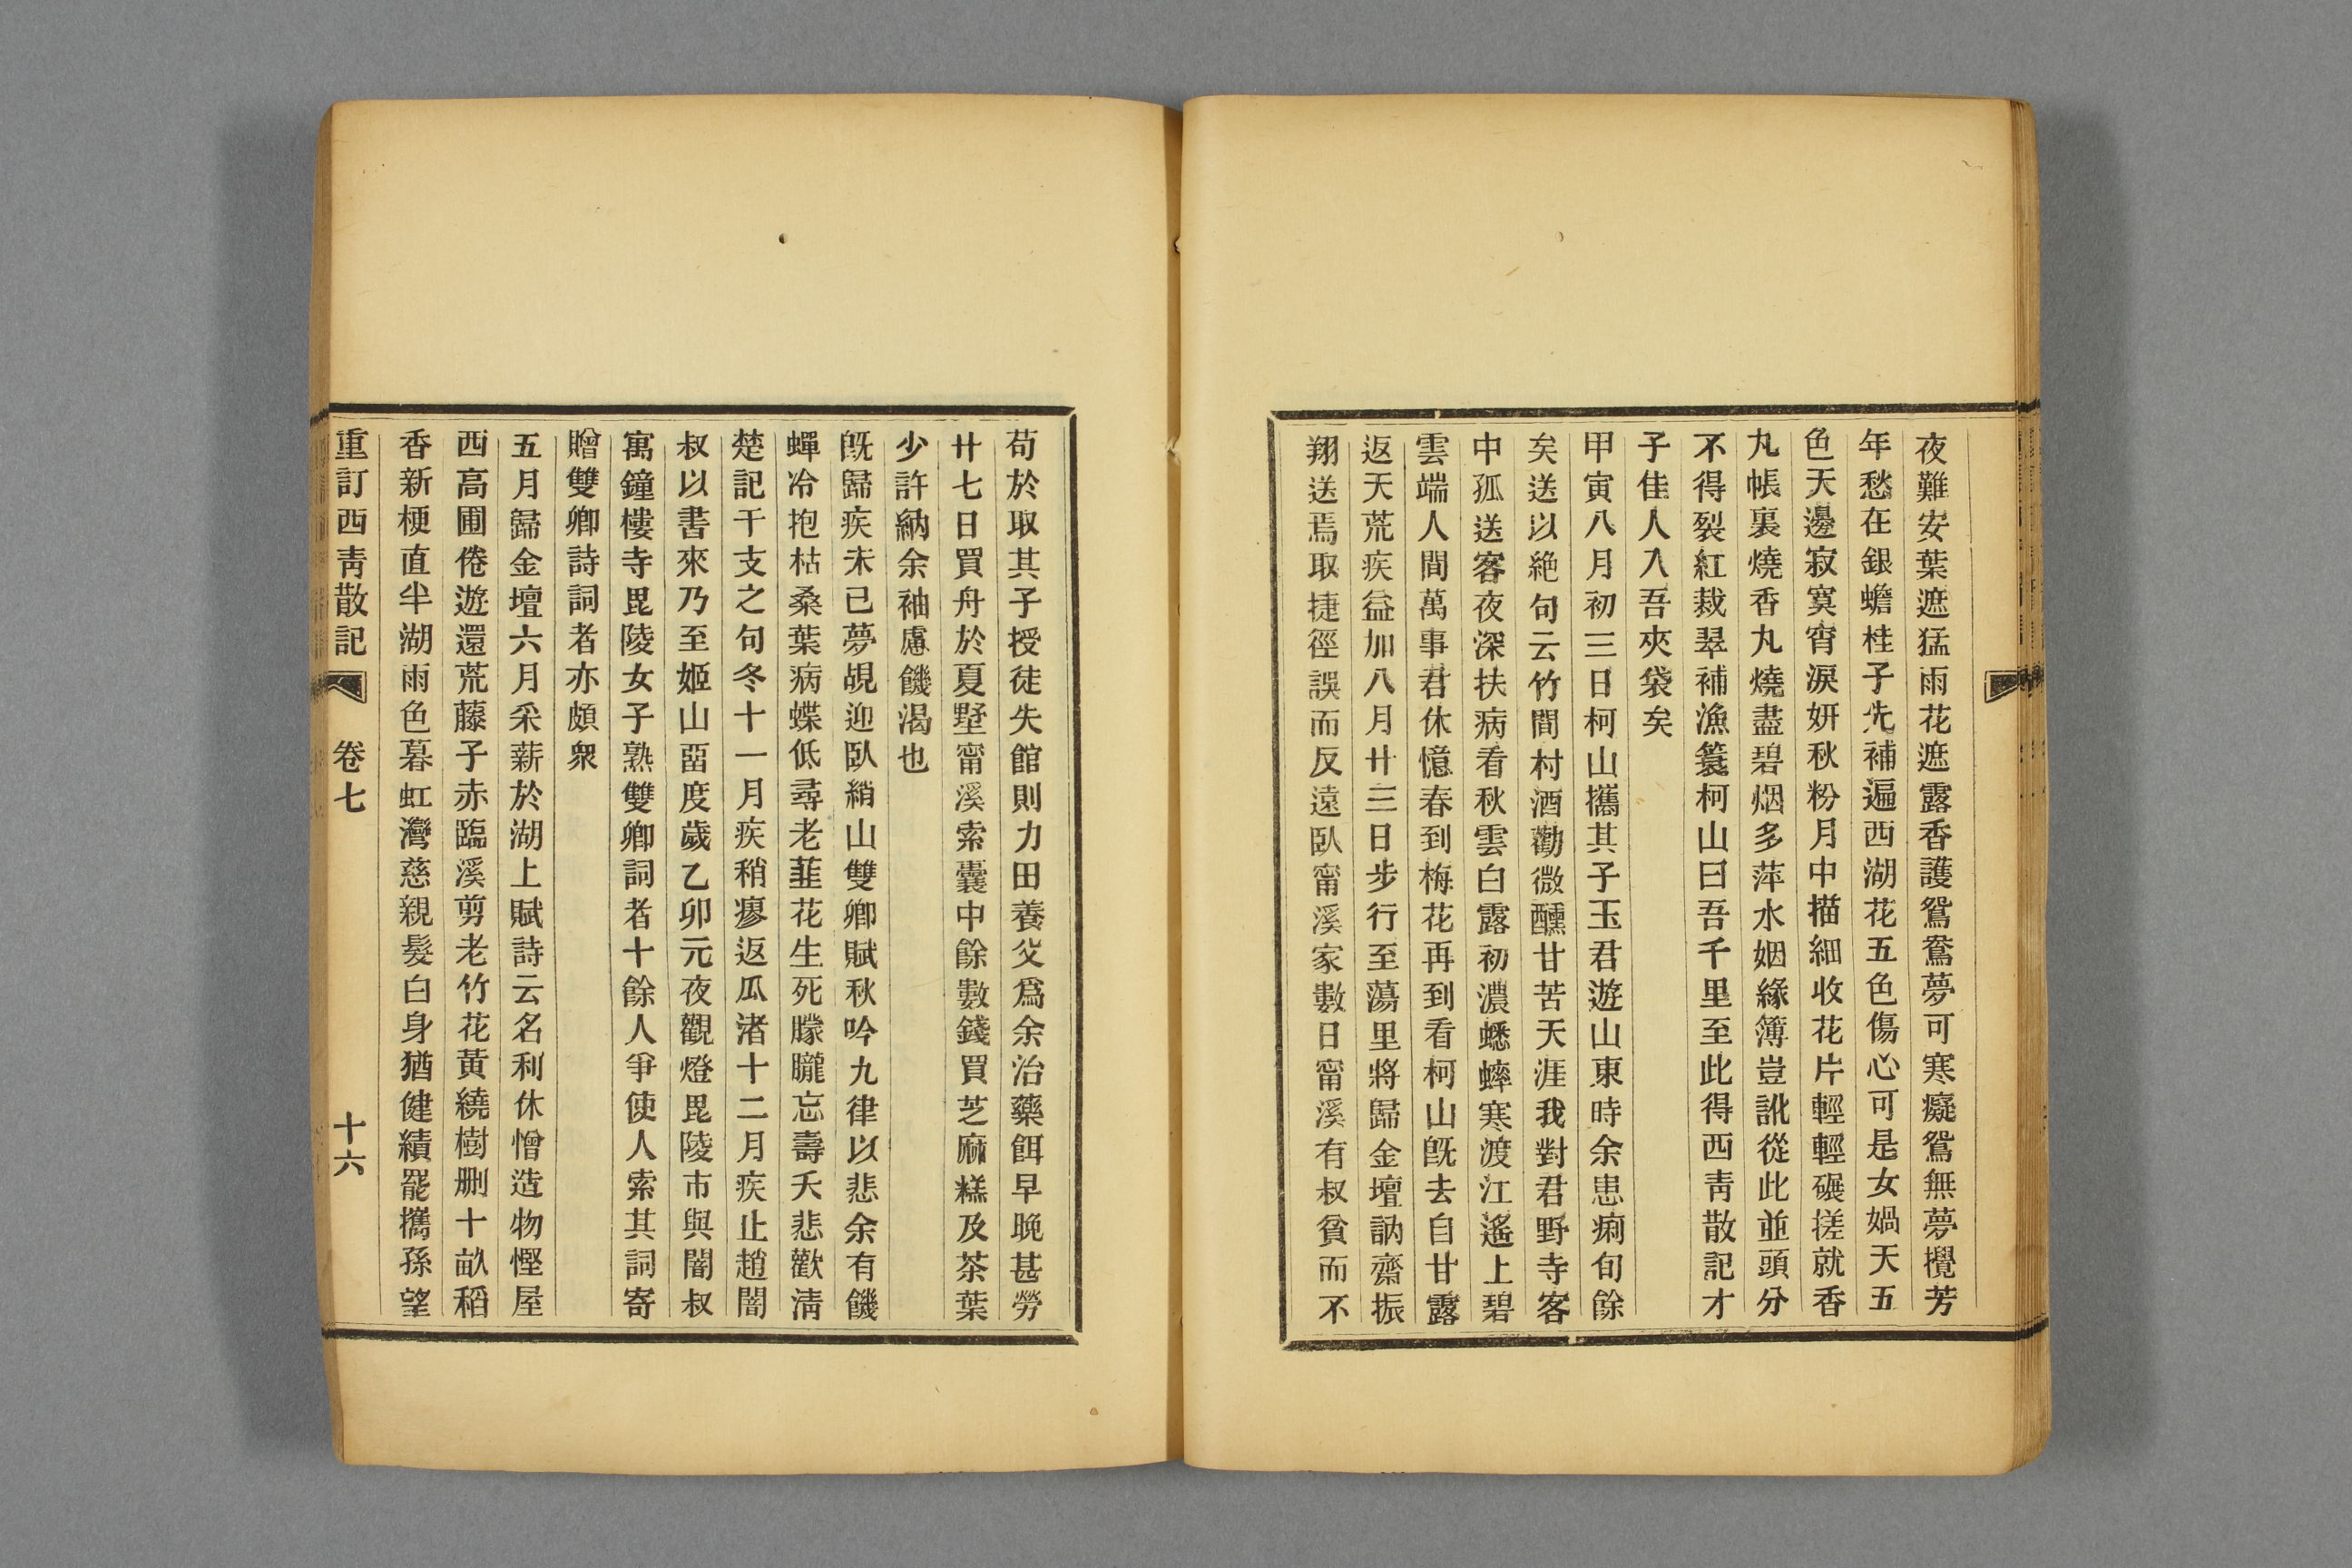 夜難安葉遮猛雨花遮露香護鴛鴦夢可寒癡鴛無夢攪芳
年愁在銀蟾桂子先補遍西湖花五色傷心可是女媧天五
色天邊寂寞宵淚妍秋粉月中描細收花片輕輕碾搓就香
丸帳裏燒香丸燒盡碧烟多萍水姻緣簿豈訛從此並頭分
不得裂紅裁翠補漁簑柯山曰吾千里至此得西靑散記才
子佳人入吾夾袋矣
甲寅八月初三日柯山攜其子玉君遊山東時余患痢旬餘
矣送以絶句云竹間村酒勸微醺甘苦天涯我對君野寺客
中孤送客夜深扶病看秋雲白露初濃蟋蟀寒渡江遙上碧
雲端人間萬事君休憶春到梅花再到看柯山旣去自甘露
返天荒疾益加八月廿三日步行至蕩里將歸金壇訥齋振
翔送焉取捷徑誤而反遠臥甯溪家數日甯溪有叔貧而不
苟於取其子授徒失館則力田養父爲余治藥餌早晚甚勞
廿七日買舟於夏墅甯溪索囊中餘數錢買芝麻糕及茶葉
少許納余袖慮饑渴也
旣歸疾未已夢覘迎臥綃山雙卿賦秋吟九律以悲余有饑
蟬冷抱枯桑葉病蝶低尋老韮花生死朦朧忘壽夭悲歡淸
楚記干支之句冬十一月疾稍瘳返瓜渚十二月疾止趙闇
叔以書來乃至姬山畱度歲乙卯元夜觀燈毘陵市與闇叔
寓鐘樓寺毘陵女子熟雙卿詞者十餘人爭使人索其詞寄
贈雙卿詩詞者亦頗衆
五月歸金壇六月采薪於湖上賦詩云名利休憎造物慳屋
西高圃倦遊還荒藤子赤臨溪剪老竹花黃繞樹刪十畝稻
香新梗直半湖雨色暮虹灣慈親髮白身猶健績罷攜孫望
重訂西靑散記　卷七　十六